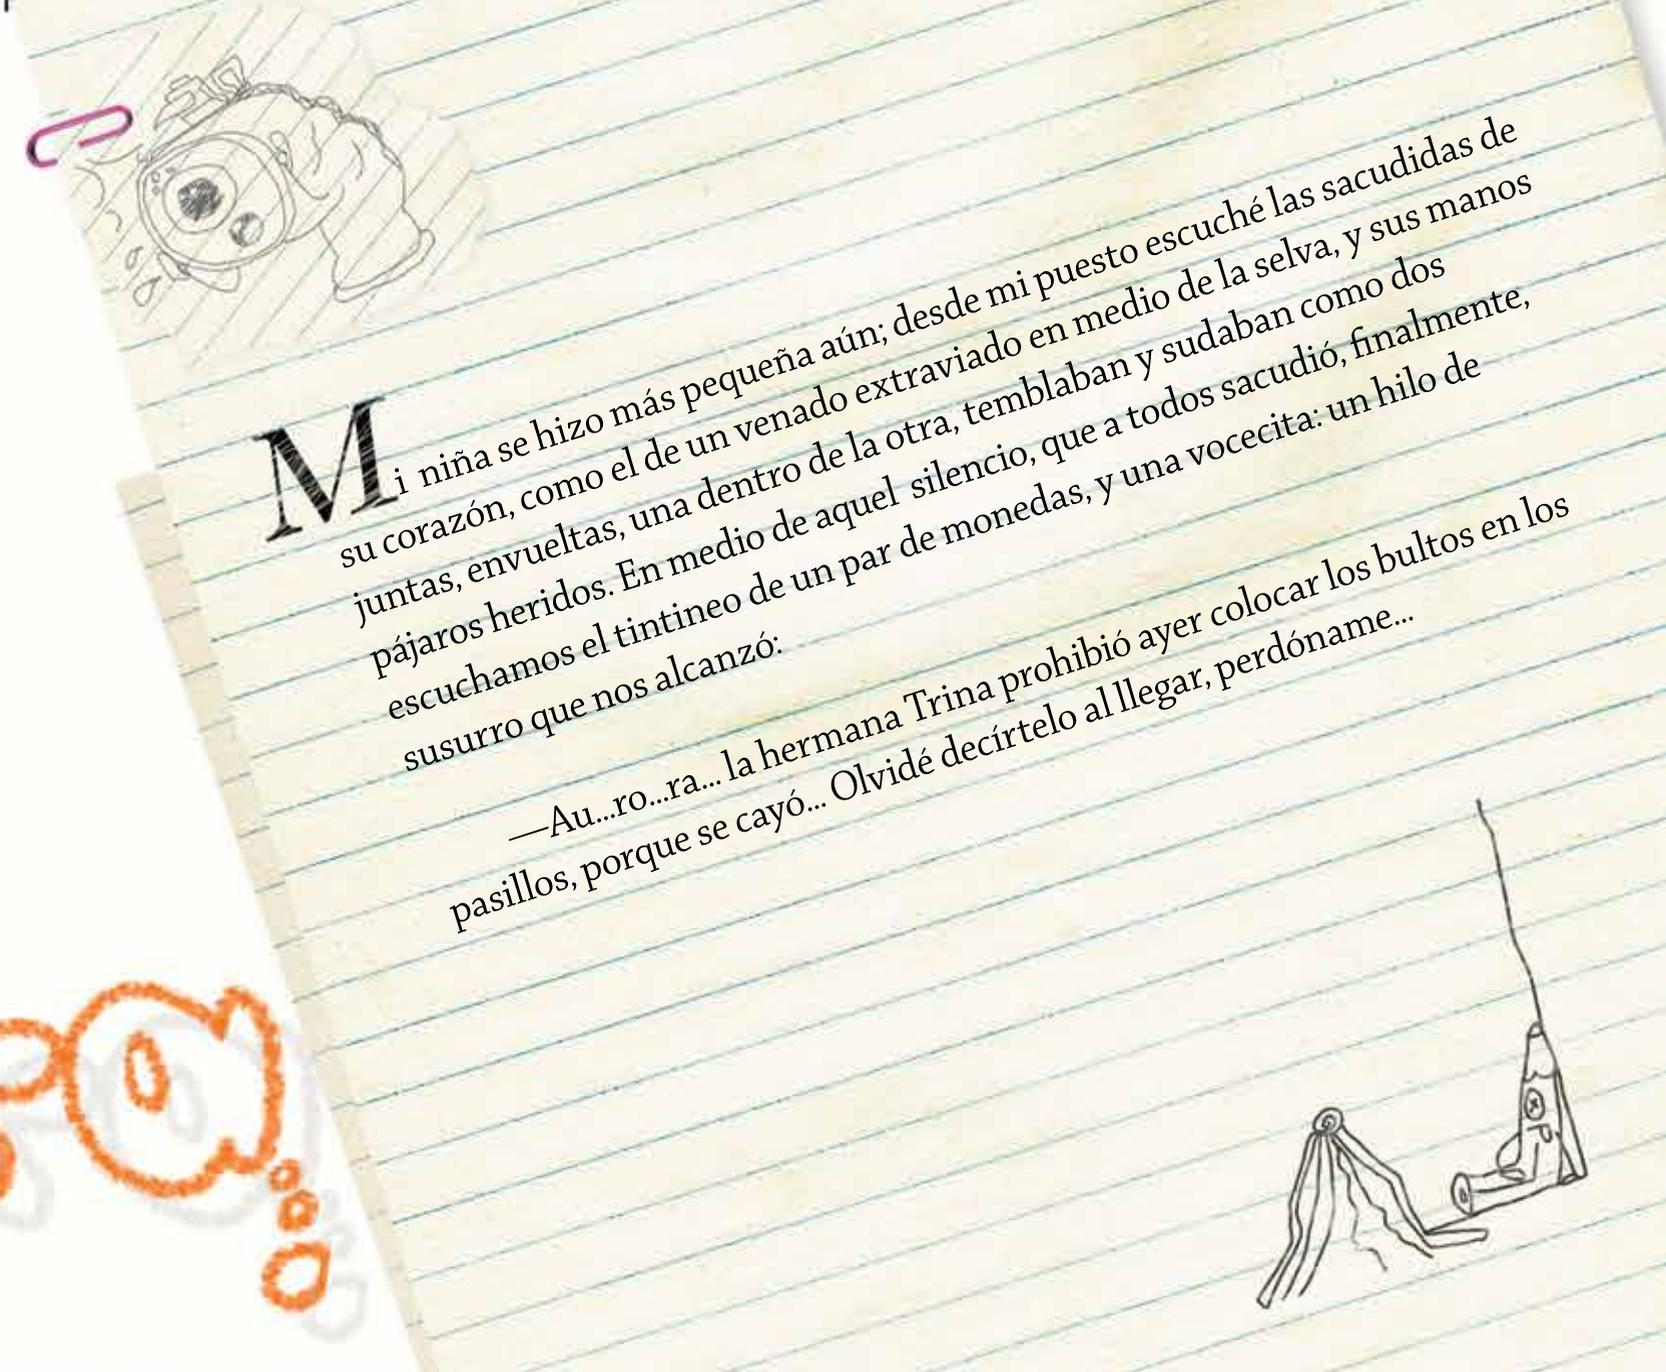 Mi niña se hizo más pequeña aún; desde mi puesto escuché las sacudidas de
su corazón, como el de un venado extraviado en medio de la selva, y sus manos
juntas, envueltas, una dentro de la otra, temblaban y sudaban como dos
pájaros heridos. En medio de aquel silencio, que a todos sacudió, finalmente,
escuchamos el tintineo de un par de monedas, y una vocecita: un hilo de
susurro que nos alcanzó:
—Au...ro...ra... la hermana Trina prohibió ayer colocar los bultos en los
pasillos, porque se cayó... Olvidé decírtelo al llegar, perdóname...